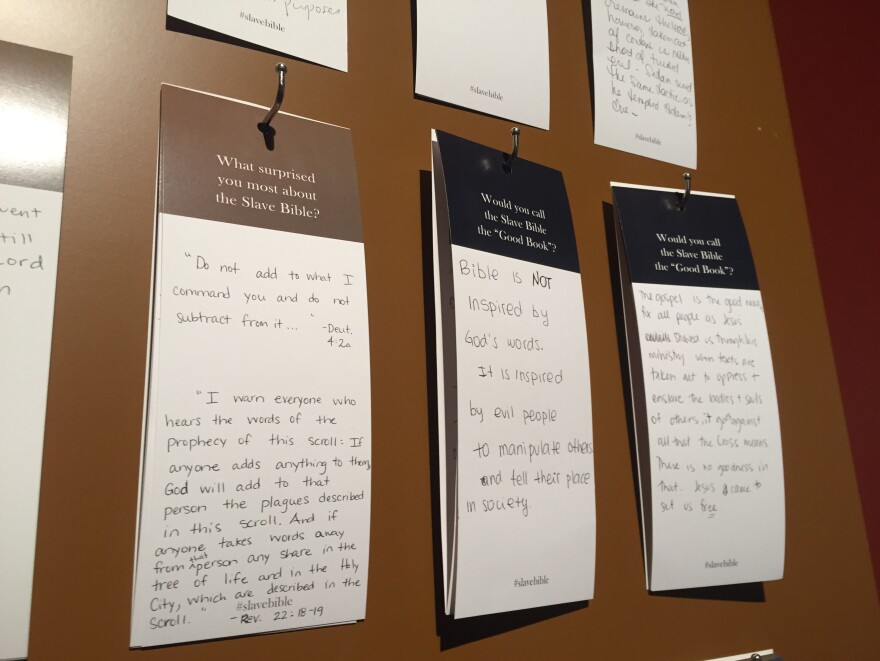 purposes
#slavebible
#slavebible
#slavebible
vent
till
ord
What surprised
you most about
the Slave Bible?
"Do not add to what I
command you and do not
subtract from it... "
-Deut.
4:2a
"I warn everyone who
hears the words of the
prophecy of this scroll: If
anyone adds anything to them,
God will add to that
person the plagues described
in this scroll. And if
anyone takes words away
from that person any share in the
tree of life and in the Holy
City, which are described in the
scroll. "
#slavebible
- REV. 22:18-19
Would you call
the Slave Bible
the "Good Book"?
Bible is NOT
Inspired by
God's words.
It is inspired
by evil people
to manipulate others
and tell their place
in society.
#slavebible
Would you call
the Slave Bible
the "Good Book"?
The gospel is the good news
for all people as Jesus
showed us through his
ministry when texts are
taken out to oppress +
enslave the bodies + souls
of others, it goes against
all that the Cross means.
There is no goodness in
that. Jesus came to
set us free
#slavebible